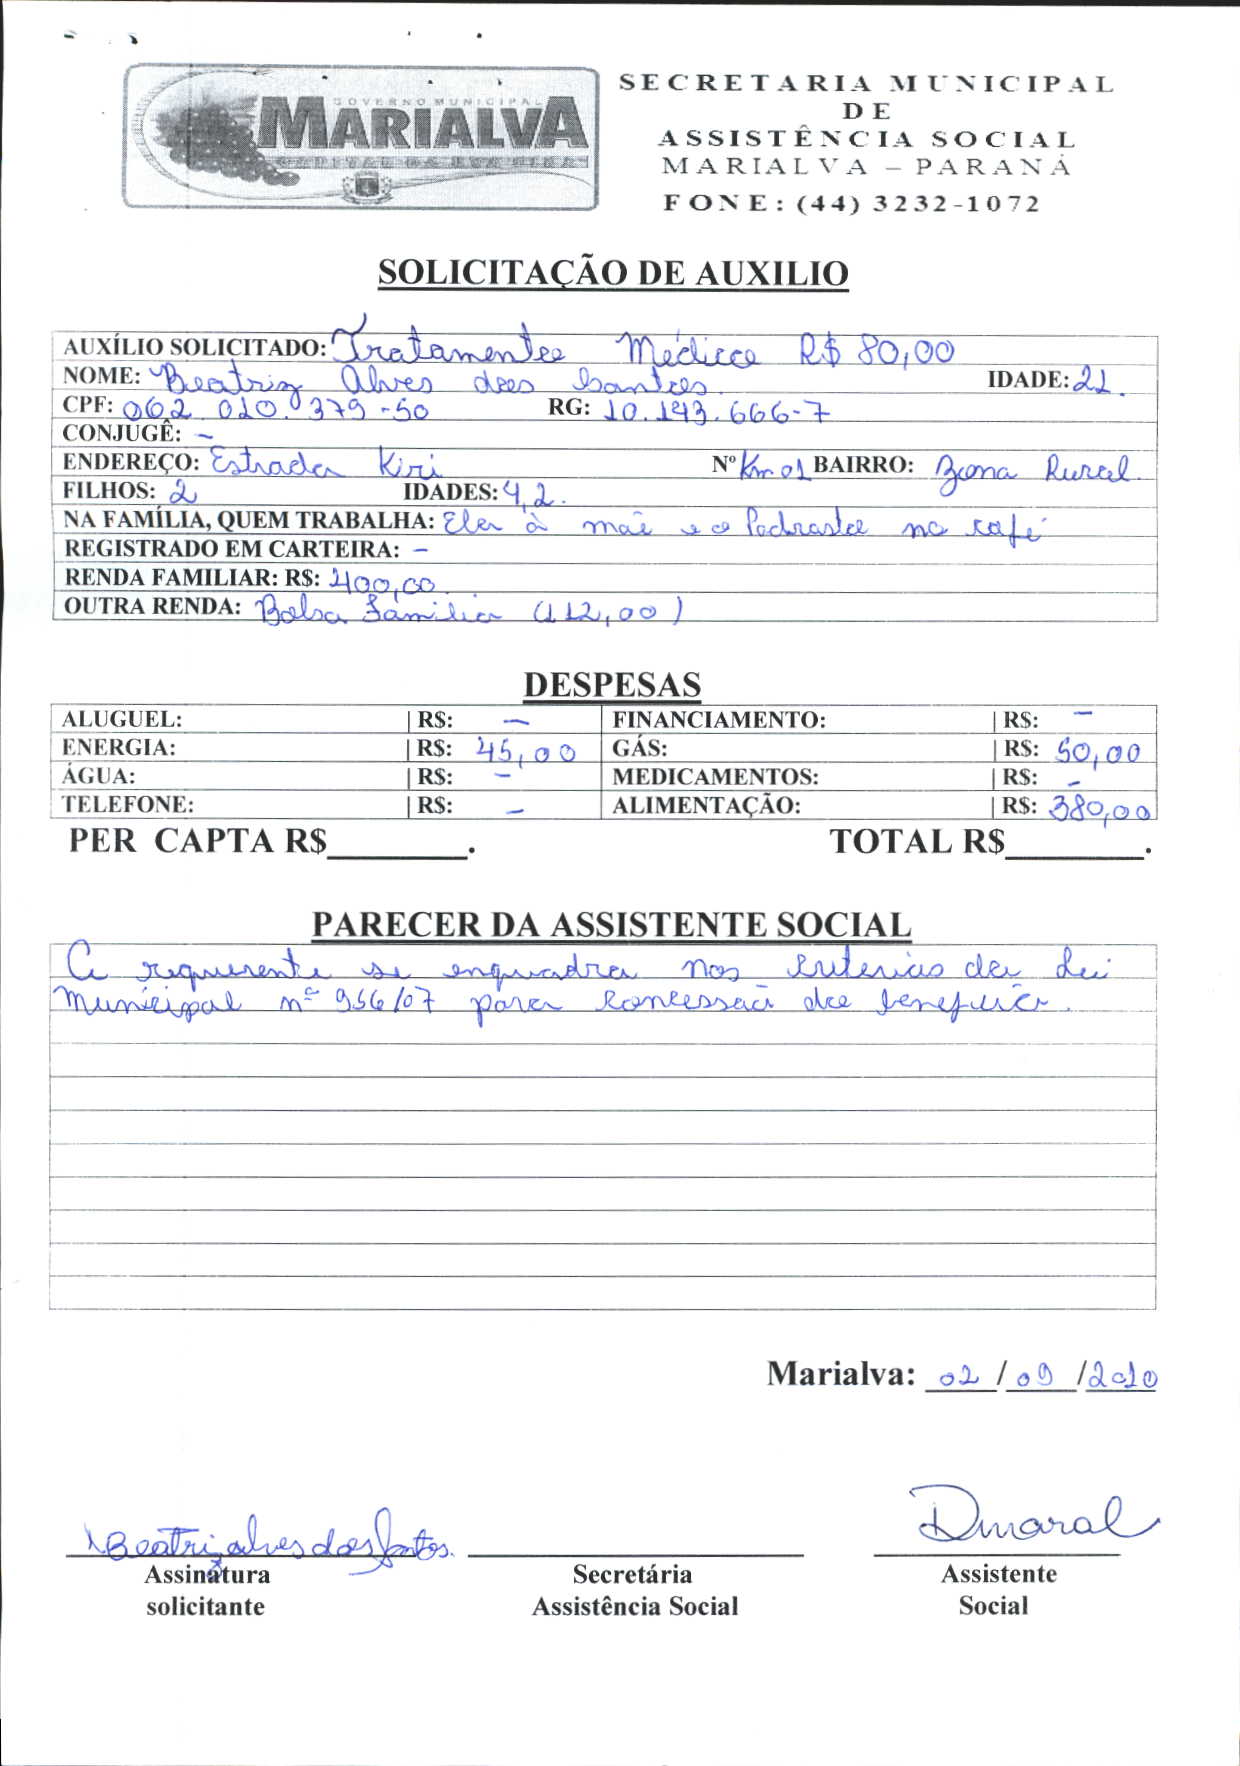 GOVERNO MUNICIPAL
MARIALVA
CAPITAL DA UVA FINA
SECRETARIA MUNICIPAL
DE
ASSISTÊNCIA SOCIAL
MARIALVA – PARANÁ
FONE: (44) 3232-1072
SOLICITAÇÃO DE AUXILIO
AUXÍLIO SOLICITADO: Tratamento Médico R$ 80,00
NOME: Beatriz Alves dos Santos IDADE: 21.
CPF: 062 010.379-50 RG: 10.143.666-7
CONJUGÊ: -
ENDEREÇO: Estrada Kiri Nº Km 01 BAIRRO: Zona Rural.
FILHOS: 2 IDADES: 4,2.
NA FAMÍLIA, QUEM TRABALHA: Ela à mãe e o Padrasto no café
REGISTRADO EM CARTEIRA: -
RENDA FAMILIAR: R$: 400,00
OUTRA RENDA: Bolsa Família (112,00)
DESPESAS
ALUGUEL: | R$: - FINANCIAMENTO: | R$: -
ENERGIA: | R$: 45,00 GÁS: | R$: 50,00
ÁGUA: | R$: - MEDICAMENTOS: | R$: -
TELEFONE: | R$: - ALIMENTAÇÃO: | R$: 380,00
PER CAPTA R$________. TOTAL R$________.
PARECER DA ASSISTENTE SOCIAL
A requerente se enquadra nos criterios da Lei
Municipal nº 956/07 para concessão do beneficio.
Marialva: 02 / 09 /2010
Beatriz alves dos Santos. Dmaral
Assinatura Secretária Assistente
solicitante Assistência Social Social